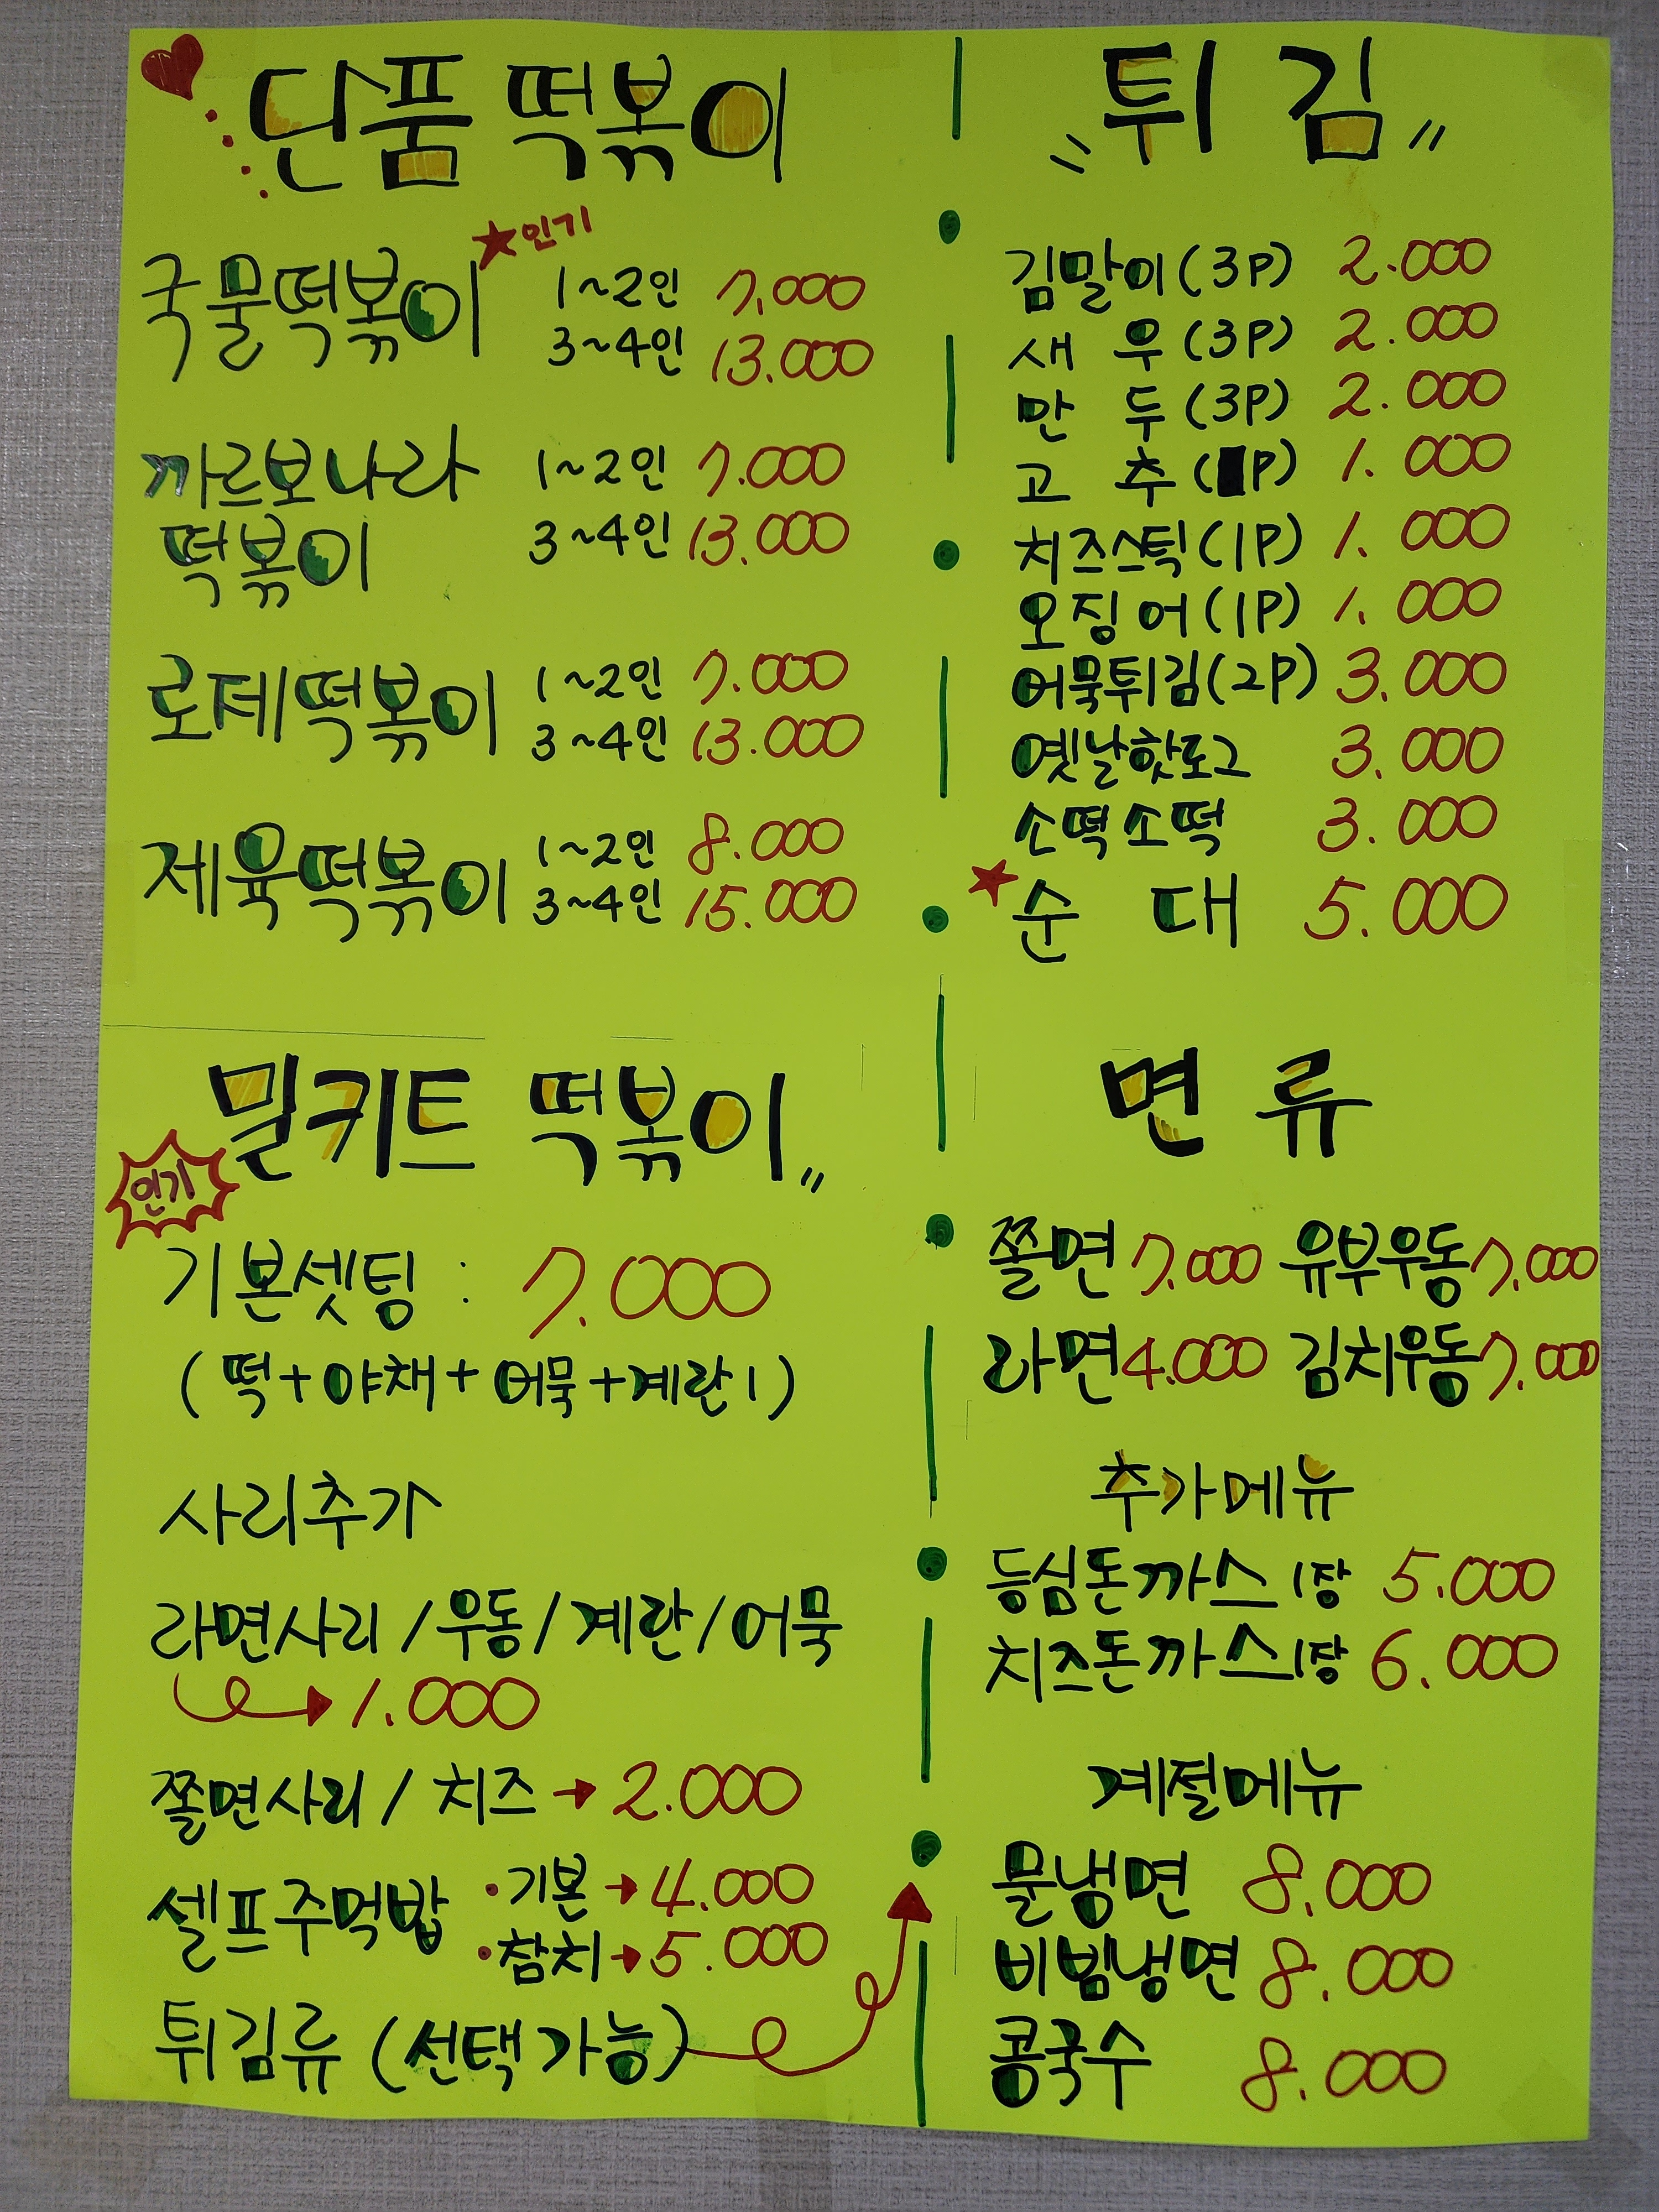 단품 떡볶이
★인기
국물떡볶이 1~2인 7.000
3~4인 13.000
까르보나라 1~2인 7.000
떡볶이 3~4인 13.000
로제떡볶이 1~2인 7.000
3~4인 13.000
제육떡볶이 1~2인 8.000
3~4인 15.000
튀김
김말이(3P) 2.000
새우(3P) 2.000
만두(3P) 2.000
고추( P) 1.000
치즈스틱(1P) 1.000
오징어(1P) 1.000
어묵튀김(2P) 3.000
옛날핫도그 3.000
소떡소떡 3.000
★순대 5.000
밀키트 떡볶이
인기
기본셋팅 : 7.000
(떡+야채+어묵+계란1)
사리추가
라면사리/우동/계란/어묵
→ 1.000
쫄면사리/치즈 → 2.000
셀프주먹밥 ·기본→4.000
·참치→5.000
튀김류 (선택가능)
면류
쫄면 7.000 유부우동 7.000
라면 4.000 김치우동 7.000
추가메뉴
등심돈까스 1장 5.000
치즈돈까스 1장 6.000
계절메뉴
물냉면 8.000
비빔냉면 8.000
콩국수 8.000